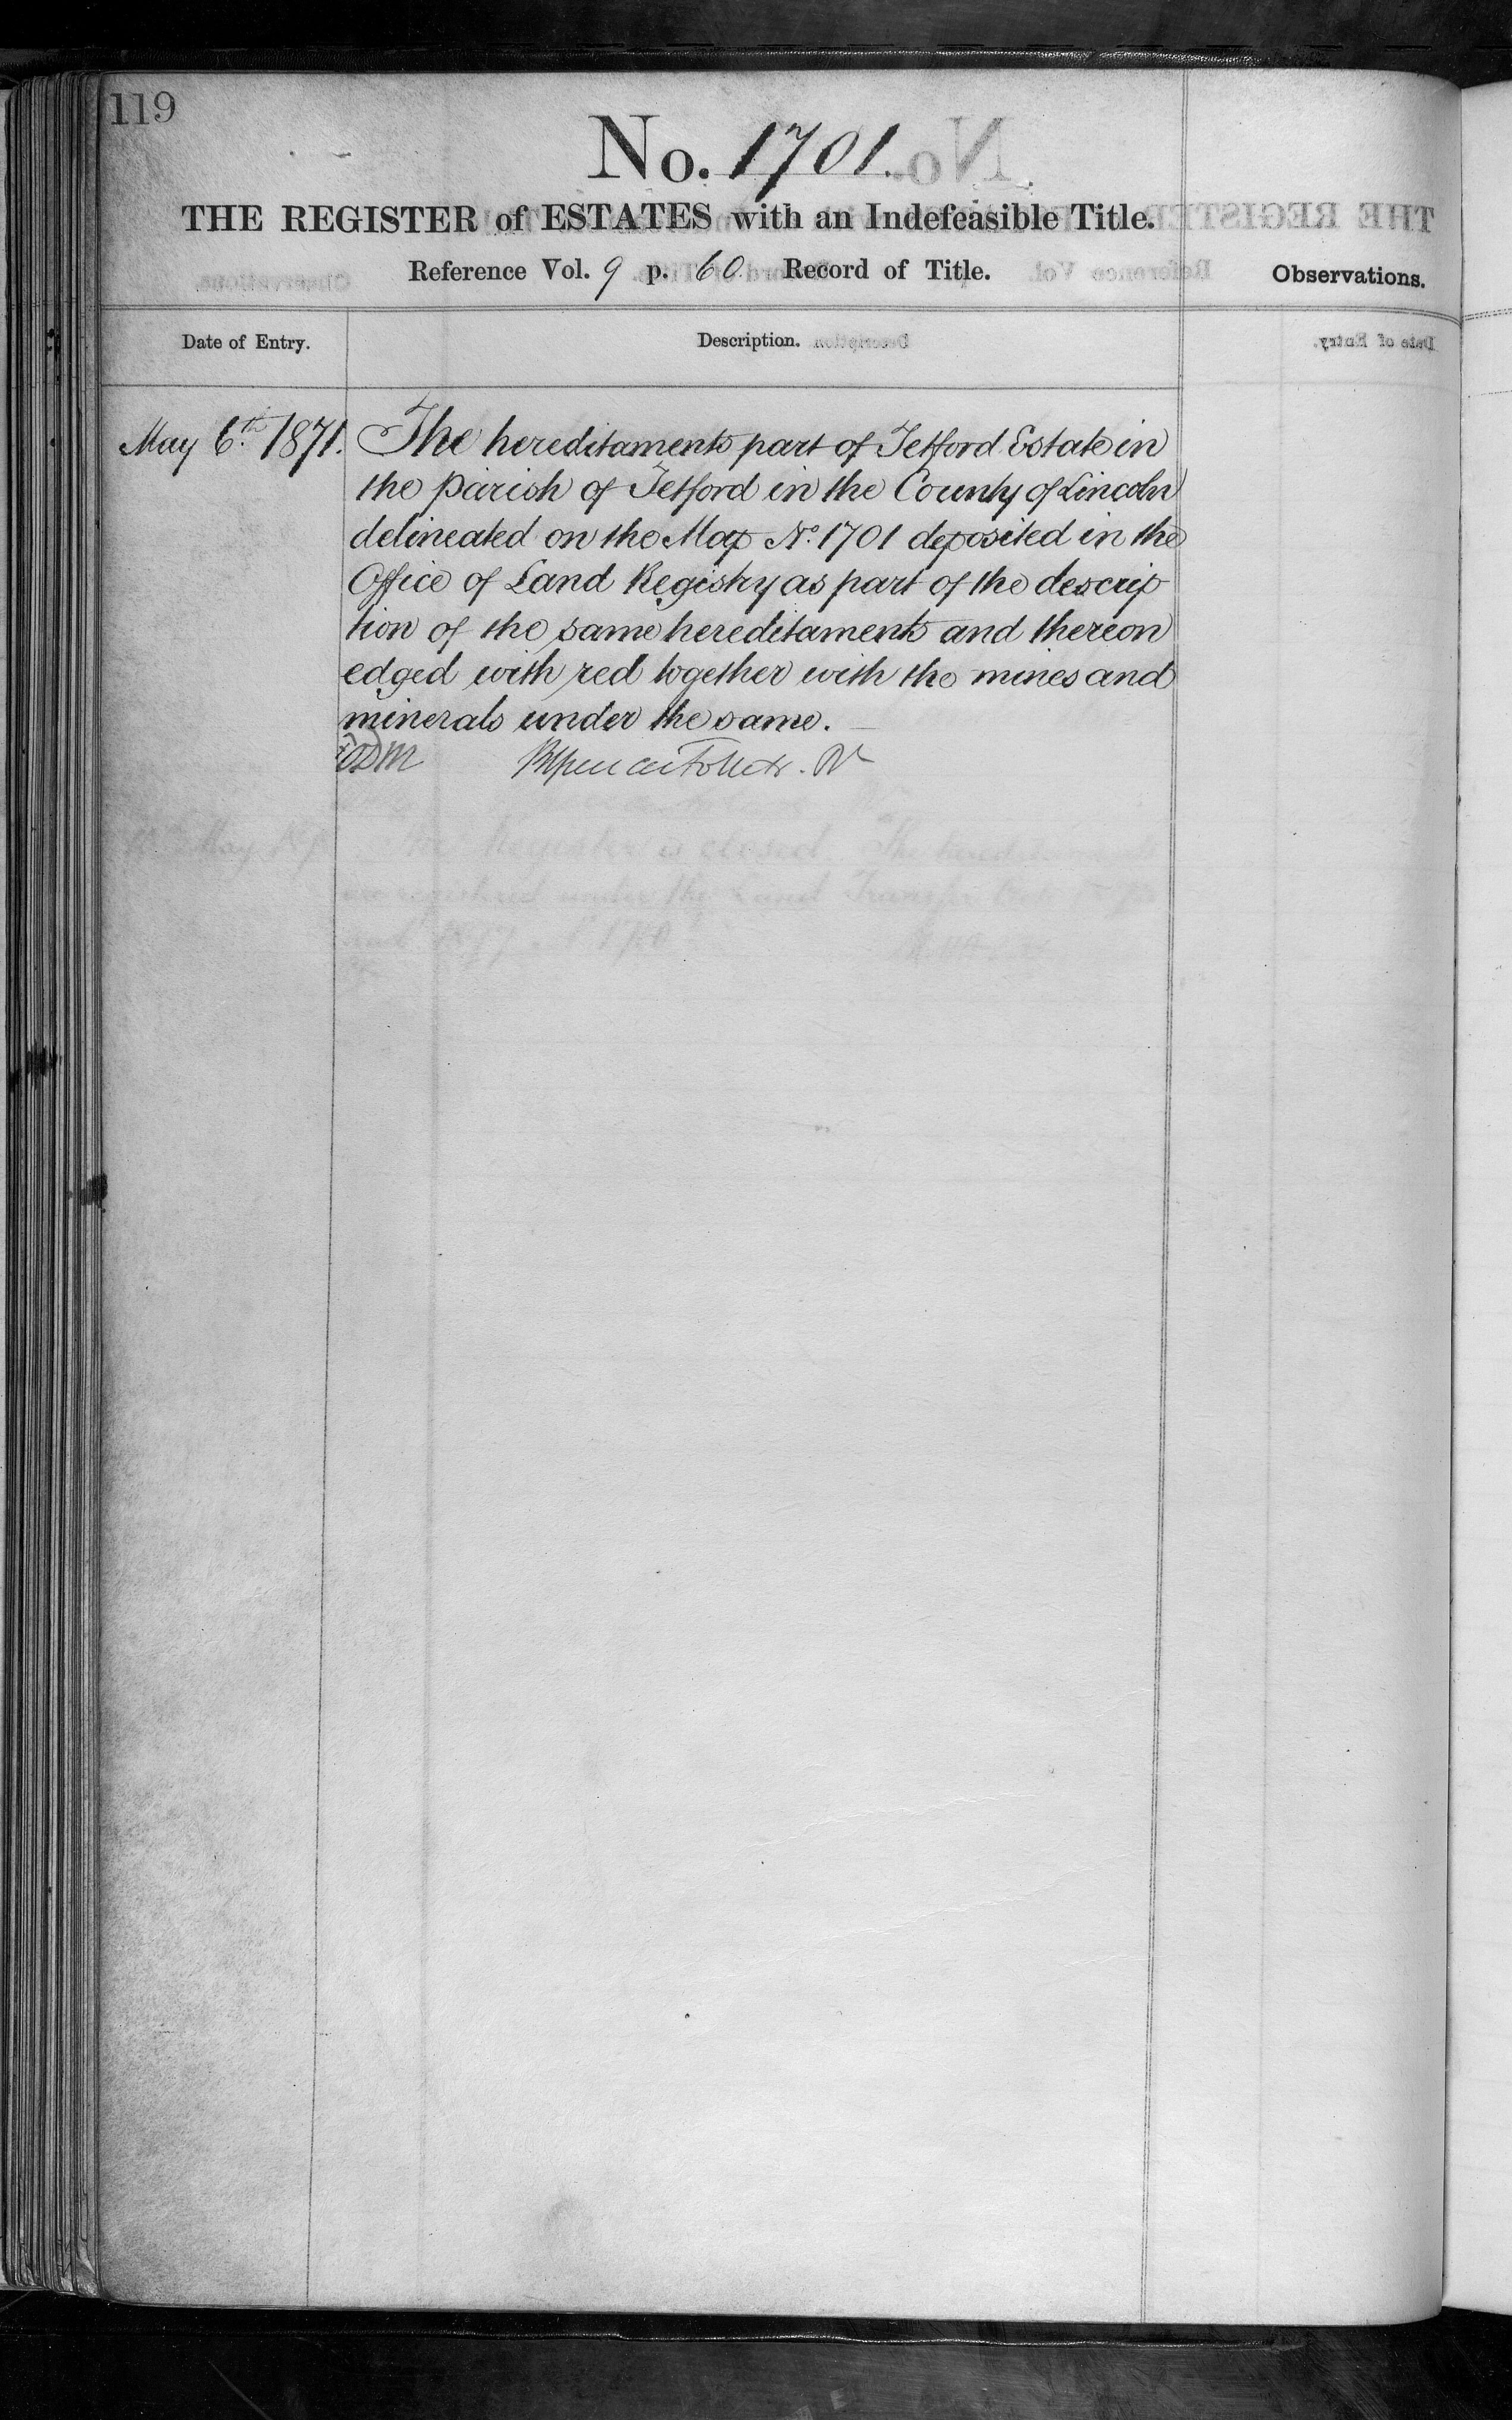 119
No. 1701.
THE REGISTER of ESTATES with an Indefeasible Title.
Reference Vol. 9 p. 60 Record of Title.
Observations.
Date of Entry.
Description.
May 6th 1871. The hereditaments part of Tetford Estate in
the Parish of Tetford in the County of Lincoln
delineated on the Map No. 1701 deposited in the
Office of Land Registry as part of the descrip
tion of the same hereditaments and thereon
edged with red together with the mines and
minerals under the same.
May
the Register is closed. The hereditaments
are registered under the Land Transfer